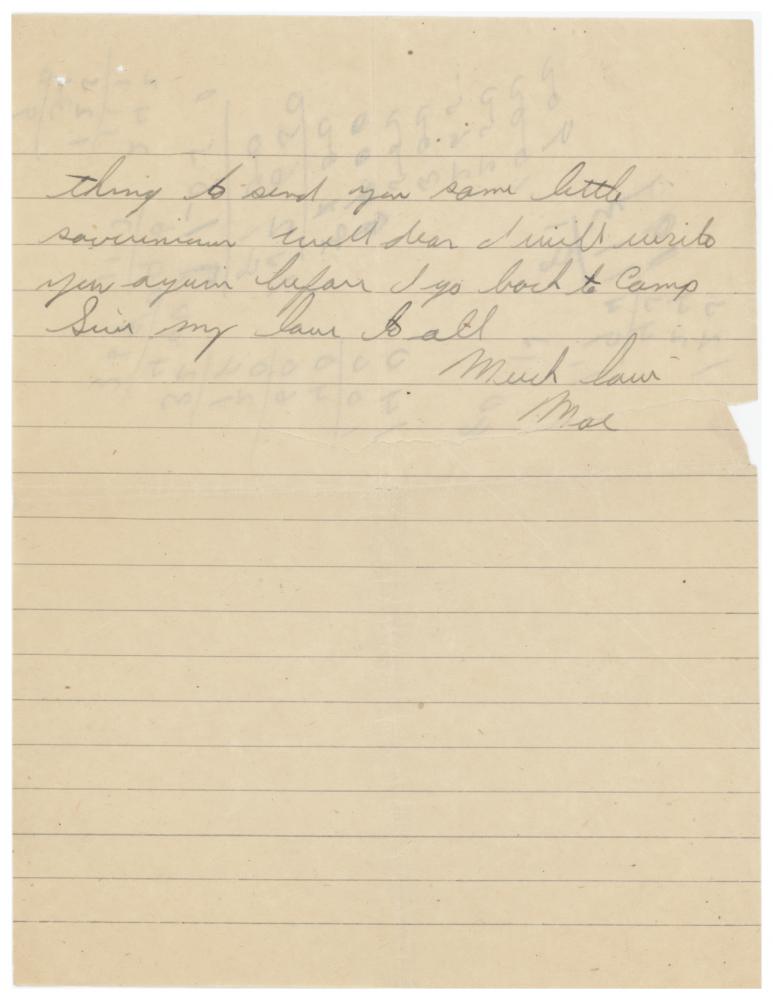 thing to send you some little
souvenir well dear I will write
you again before I go back to Camp
Give my love to all
Much love
Moe